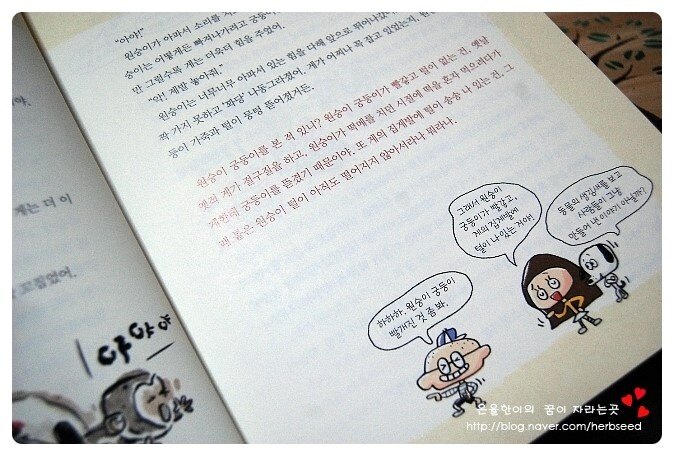 "아야!"
원숭이가 아파서 소리를
숭이는 어떻게든 빠져나가려고 궁둥이
만 그럴수록 게는 더욱더 힘을 주었어.
"악! 제발 놓아줘."
원숭이는 너무너무 아파서 있는 힘을 다해 앞으로 뛰어나갔어
짝 가지 못하고 '꽈당' 나동그라졌어. 게가 어찌나 꽉 잡고 있었는지, 원
둥이 가죽과 털이 몽땅 뜯겼거든.
원숭이 궁둥이를 본 적 있니? 원숭이 궁둥이가 빨갛고 털이 없는 건, 옛날
옛적 게가 절구질을 하고, 원숭이가 떡메를 치던 시절에 떡을 혼자 먹으려다가
게한테 궁둥이를 뜯겼기 때문이야. 또 게의 집게발에 털이 숭숭 나 있는 건, 그
때 붙은 원숭이 털이 아직도 떨어지지 않아서라나 뭐라나.
게는 더 이
꼬집었어.
아야야
그래서 원숭이
궁둥이가 빨갛고,
게의 집게발에
털이 나 있는 거야!
동물의 생김새를 보고
사람들이 그냥
만들어 낸 이야기 아닐까?
하하하. 원숭이 궁둥이
빨개진 것 좀 봐.
은율한이의 꿈이 자라는곳
http://blog.naver.com/herbseed